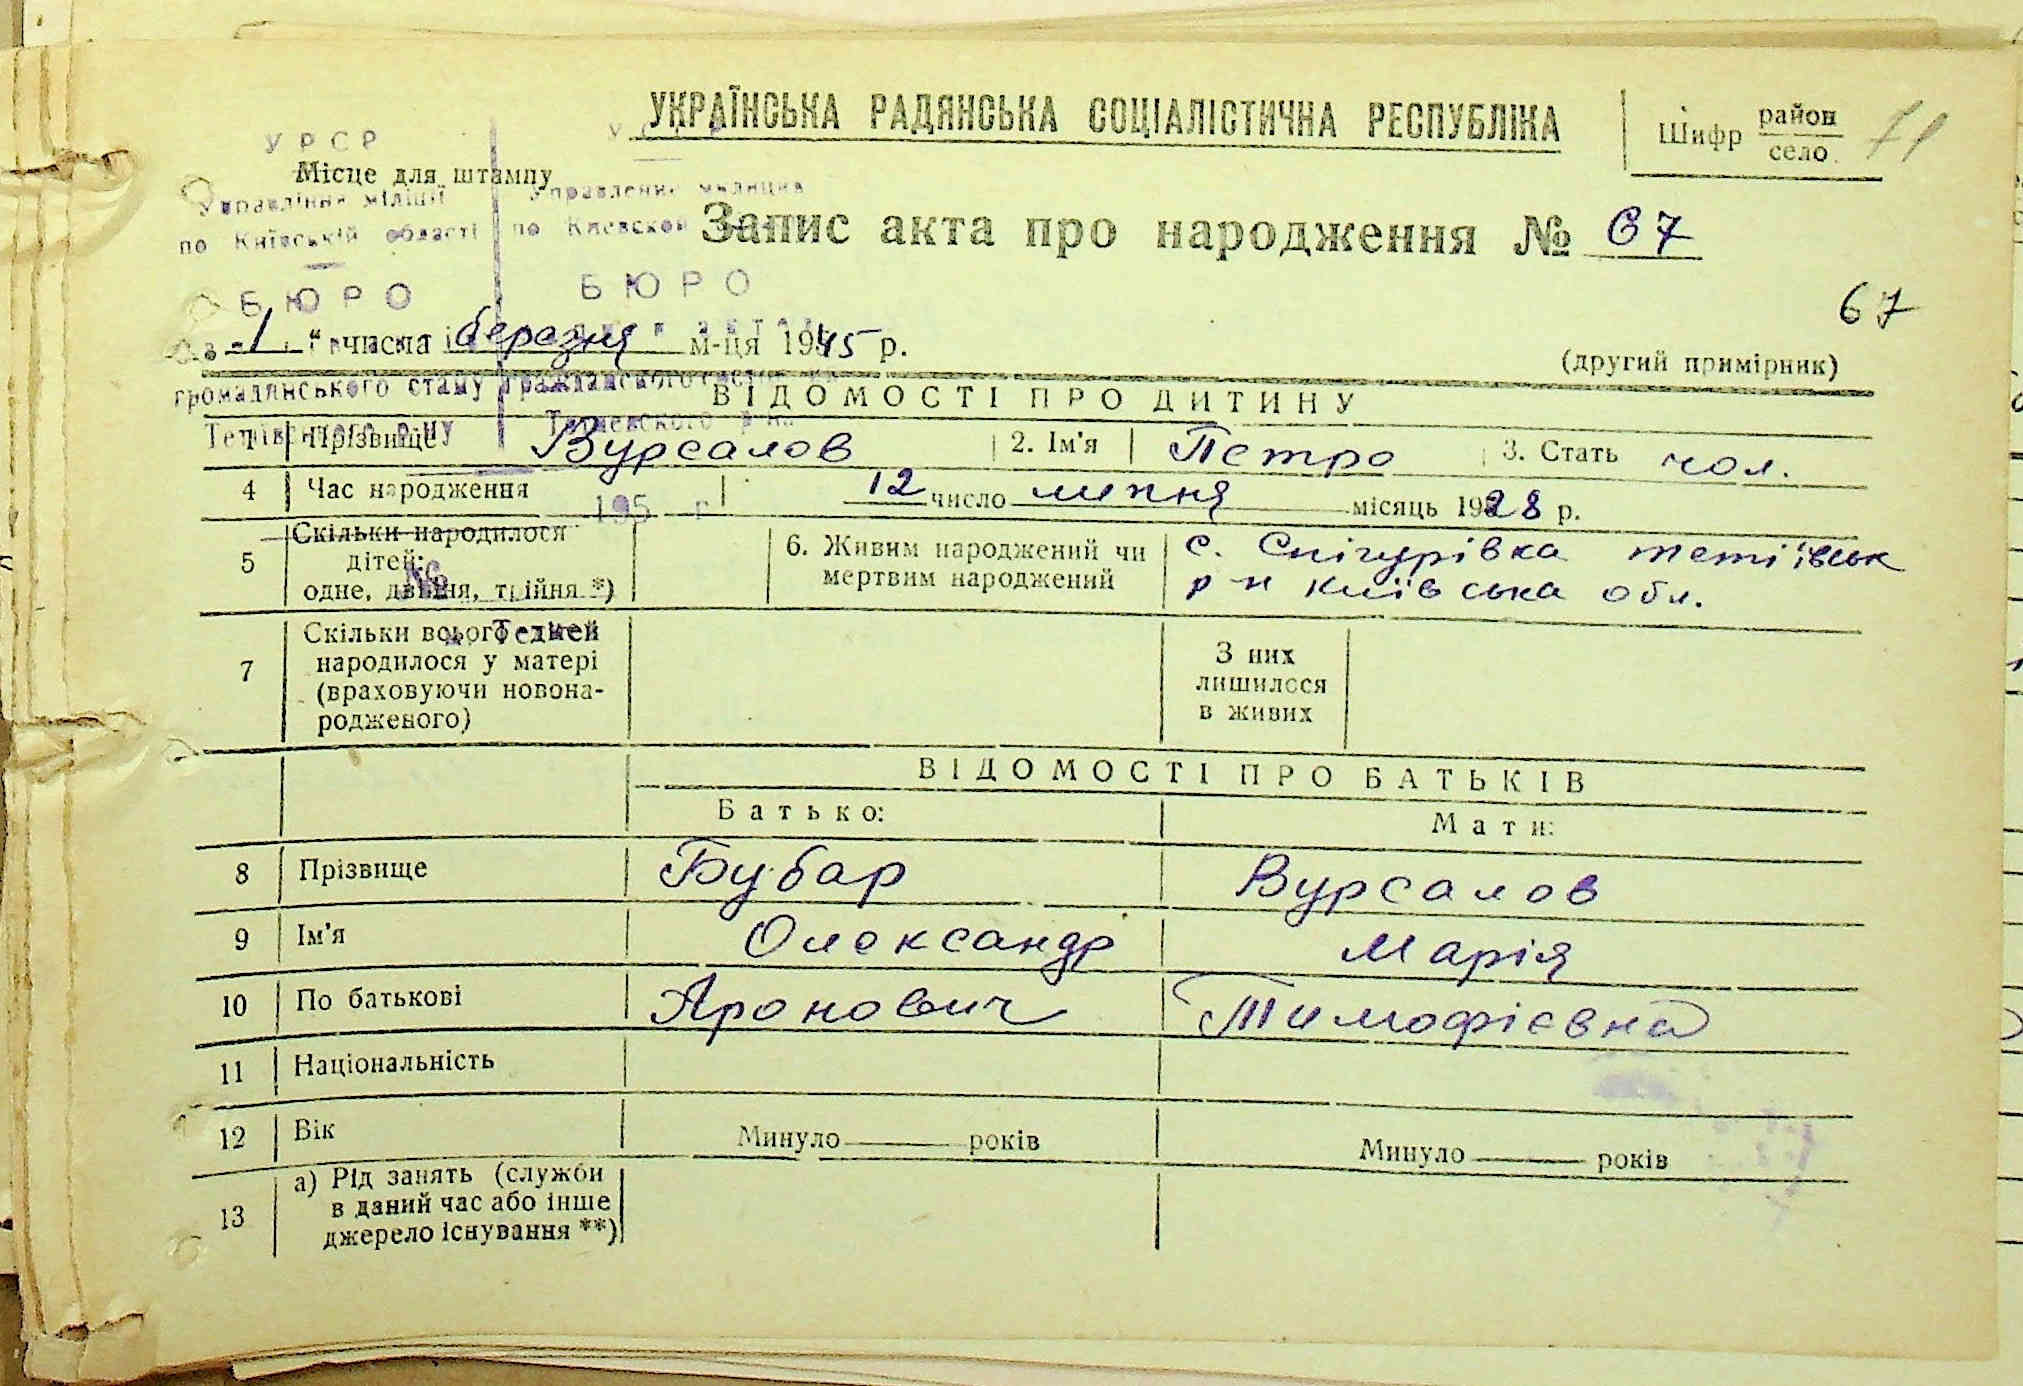 УКРАЇНСЬКА РАДЯНСЬКА СОЦІАЛІСТИЧНА РЕСПУБЛІКА
Шифр район
село 71
УРСР
Місце для штампу
Управління міліції Управление милиции
по Київській області по Киевской
Запис акта про народження № 67
БЮРО БЮРО
67
1 " числа березня м-ця 1945 р.
(другий примірник)
громадянського стану гражданского
ВІДОМОСТІ ПРО ДИТИНУ
Тетіївського р-ну Тетиевского р-на
1 Прізвище Вурсалов 2. Ім'я Петро 3. Стать чол.
4 Час народження 12 число липня місяць 1928 р.
195 г
5 Скільки народилося дітей: одне, двійня, трійня *)
№
6. Живим народжений чи мертвим народжений
с. Снігурівка тетіївськ
р-н київська обл.
7 Скільки всього дітей
народилося у матері
(враховуючи новона-
родженого)
З них
лишилося
в живих
ВІДОМОСТІ ПРО БАТЬКІВ
Батько: Мати:
8 Прізвище Бубар Вурсалов
9 Ім'я Олександр Марія
10 По батькові Аронович Тимофієвна
11 Національність
12 Вік Минуло років Минуло років
13 а) Рід занять (служби
в даний час або інше
джерело існування **)